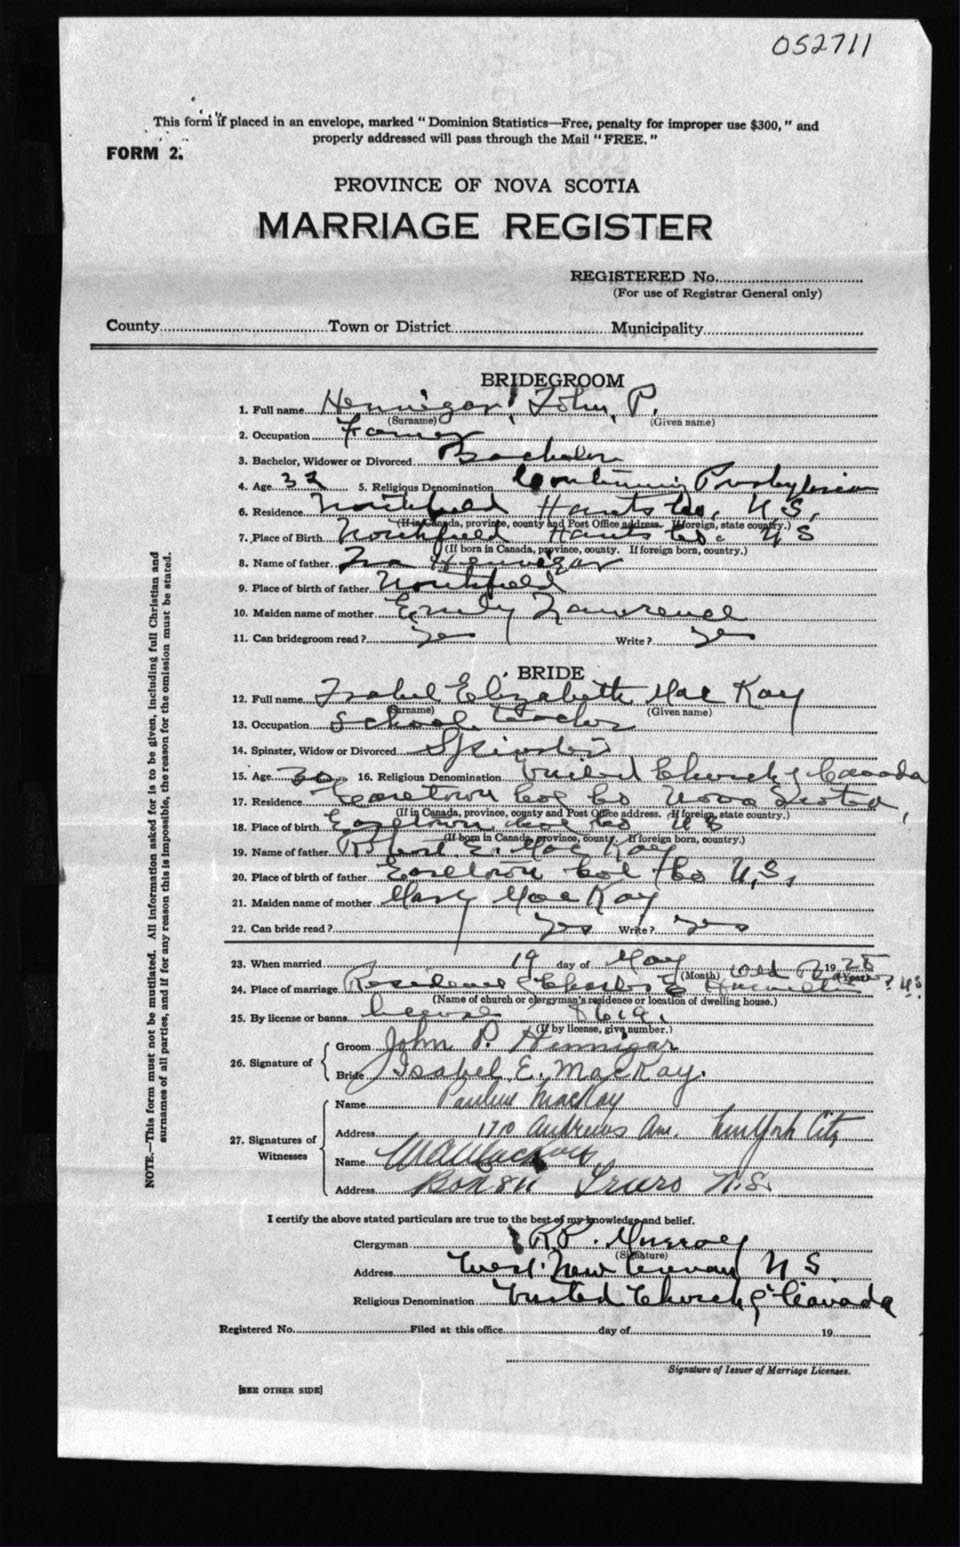 052711
This form if placed in an envelope, marked "Dominion Statistics—Free, penalty for improper use $300," and
properly addressed will pass through the Mail "FREE."
FORM 2.
PROVINCE OF NOVA SCOTIA
MARRIAGE REGISTER
REGISTERED No.
(For use of Registrar General only)
County Town or District Municipality
BRIDEGROOM
1. Full name Hennigar, John P.
(Surname) (Given name)
2. Occupation Farmer
3. Bachelor, Widower or Divorced Bachelor
4. Age 32 5. Religious Denomination Continuing Presbyterian
6. Residence Northfield Hants Co. N.S.
(If in Canada, province, county and Post Office address. If foreign, state country.)
7. Place of Birth Northfield Hants Co. N S
(If born in Canada, province, county. If foreign born, country.)
8. Name of father Hennigar
9. Place of birth of father Northfield
10. Maiden name of mother Emily Lawrence
11. Can bridegroom read? yes Write? yes
BRIDE
12. Full name Isabel Elizabeth MacKay
(Surname) (Given name)
13. Occupation School Teacher
14. Spinster, Widow or Divorced Spinster
15. Age 30 16. Religious Denomination United Church of Canada
17. Residence Earltown Col Co Nova Scotia,
(If in Canada, province, county and Post Office address. If foreign, state country.)
18. Place of birth Earltown Col Co N S
(If born in Canada, province, county. If foreign born, country.)
19. Name of father Robert E. MacKay
20. Place of birth of father Earltown Col Co N.S.
21. Maiden name of mother Mary MacKay
22. Can bride read? yes Write? yes
23. When married 19 day of May 19
(Month) (Year)
24. Place of marriage Residence of Charles E N.S.
(Name of church or clergyman's residence or location of dwelling house.)
25. By license or banns license
(If by license, give number.)
26. Signature of Groom John P. Hennigar
Bride Isabel E. MacKay.
27. Signatures of Witnesses
Name Pauline MacKay
Address 170 Andrews Ave. New York City
Name
Address Box 811 Truro N.S.
I certify the above stated particulars are true to the best of my knowledge and belief.
Clergyman R.P. Murray
(Signature)
Address West New Annan N S
Religious Denomination United Church of Canada
Registered No. Filed at this office day of 19
Signature of Issuer of Marriage Licenses.
[SEE OTHER SIDE]
NOTE.—This form must not be mutilated. All information asked for is to be given, including full Christian and
surnames of all parties, and if for any reason this is impossible, the reason for the omission must be stated.